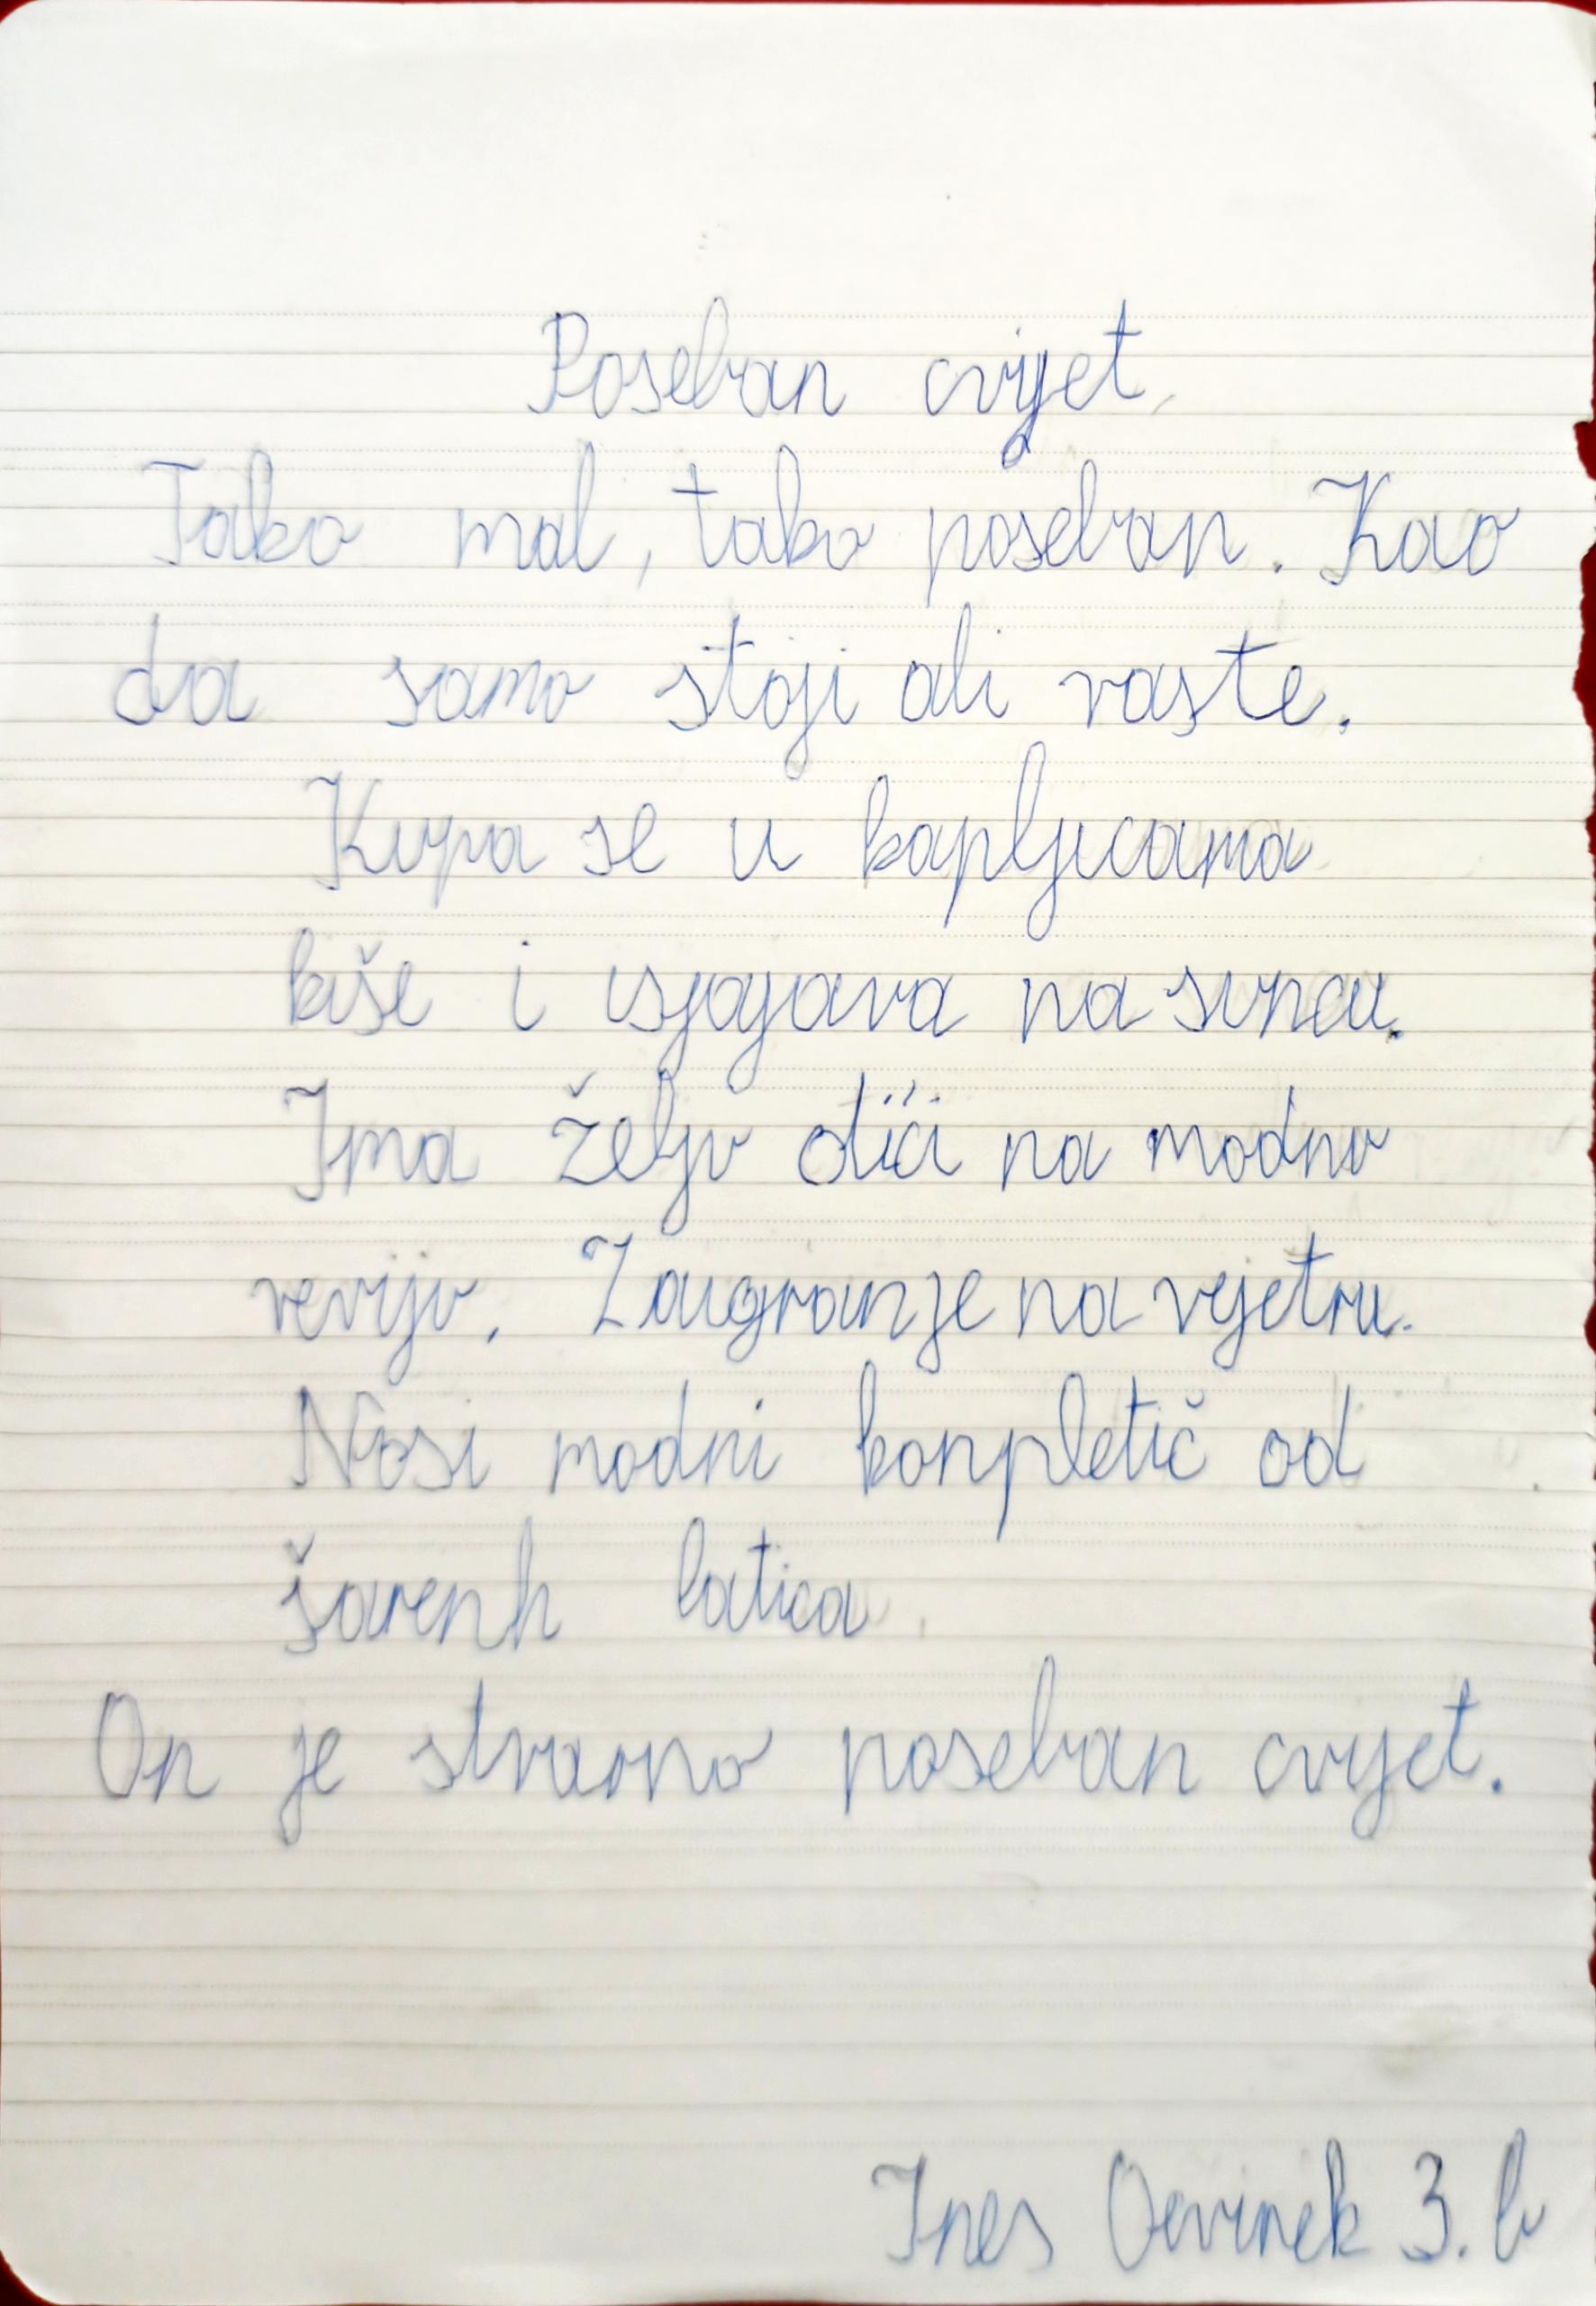 Poseban cvijet
Tako mal, tako poseban. Kao
da samo stoji ali raste.
Kupa se u kapljicama
kiše i isjajava na suncu.
Ima želju otići na modnu
reviju. Zaigran je na vejetru.
Nosi modni konpletić od
šarenh latica.
On je stvarno poseban cvijet.
Ines 3. b